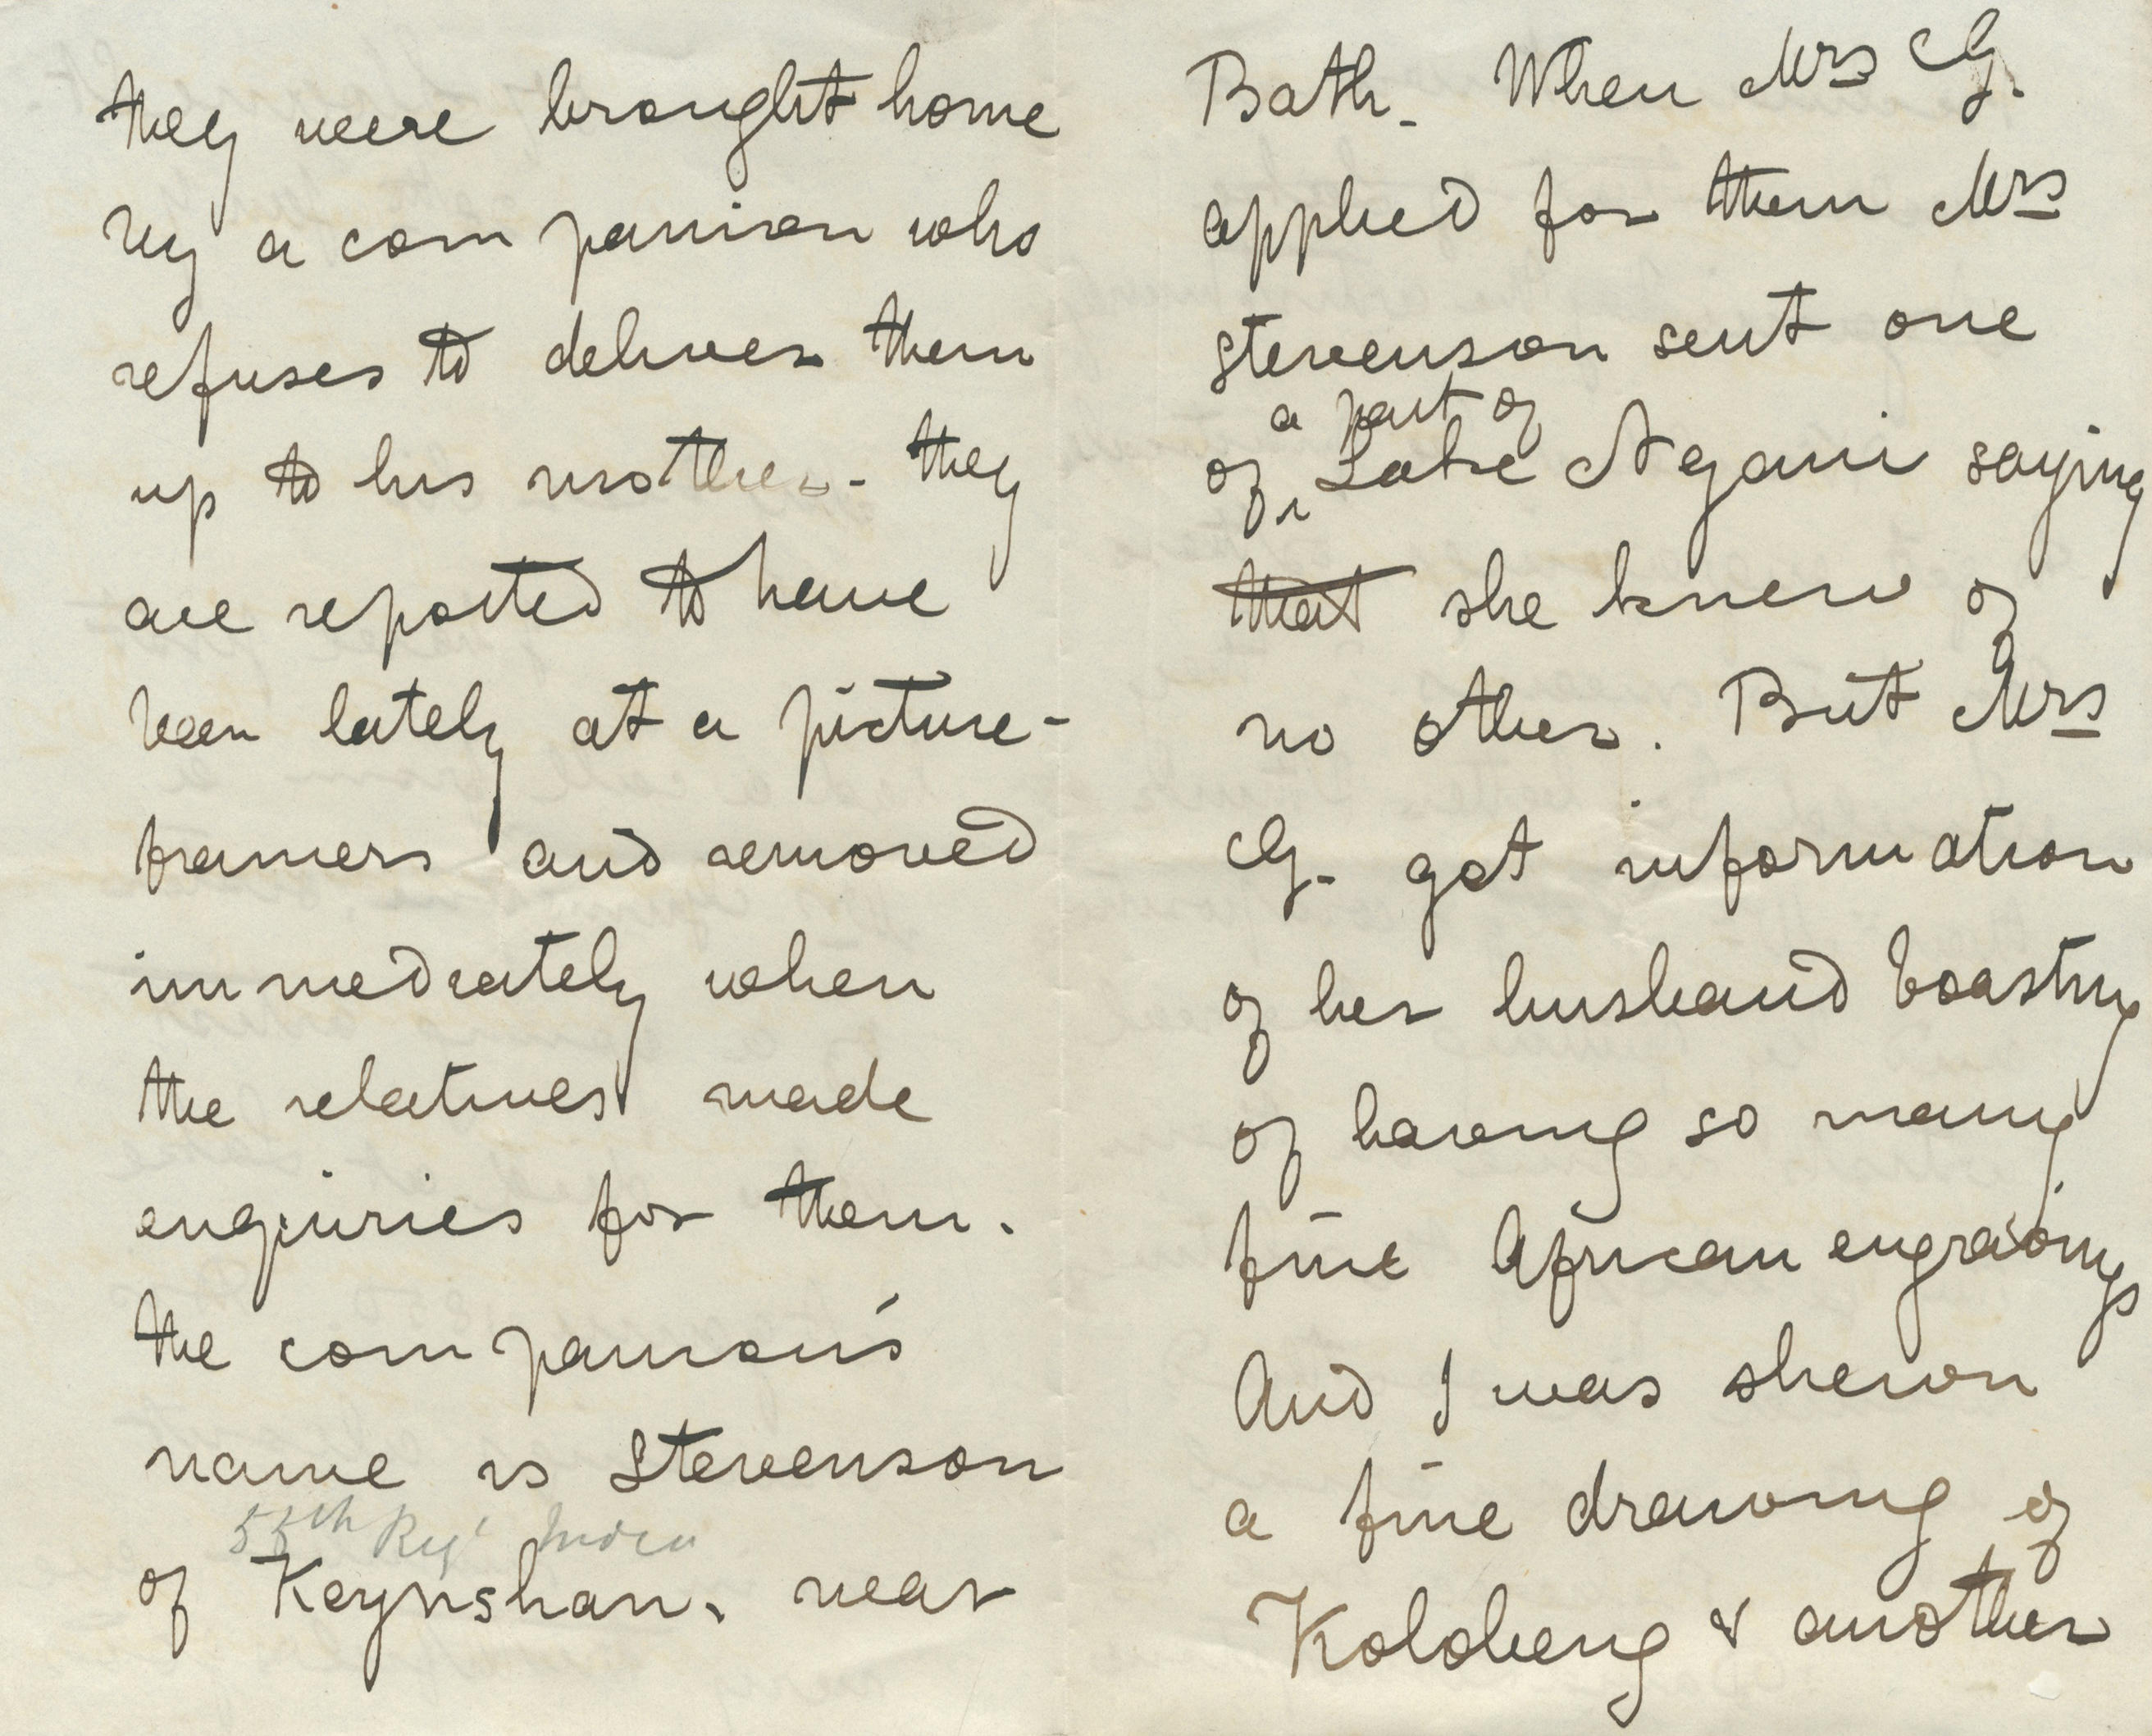 they were brought home
by a companion who
refuses to deliver them
up to his mother - they
are reported to have
been lately at a picture-
framers and removed
immediately when
the relatives made
enquiries for them.
the companion's
name is Stevenson
55th Regt India
of Keynshan. near
Bath. When Mrs G.
applied for them Mrs
Stevenson sent one
a part of
of Lake Ngami saying
that she knew of
no other. But Mrs
G. got information
of her husband boasting
of having so many
fine African engravings
And I was shewn
a fine drawing of
Kolobeng & another